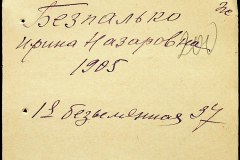 Безпалько
Ирина Назаровна
1905
1ая безымянная 37